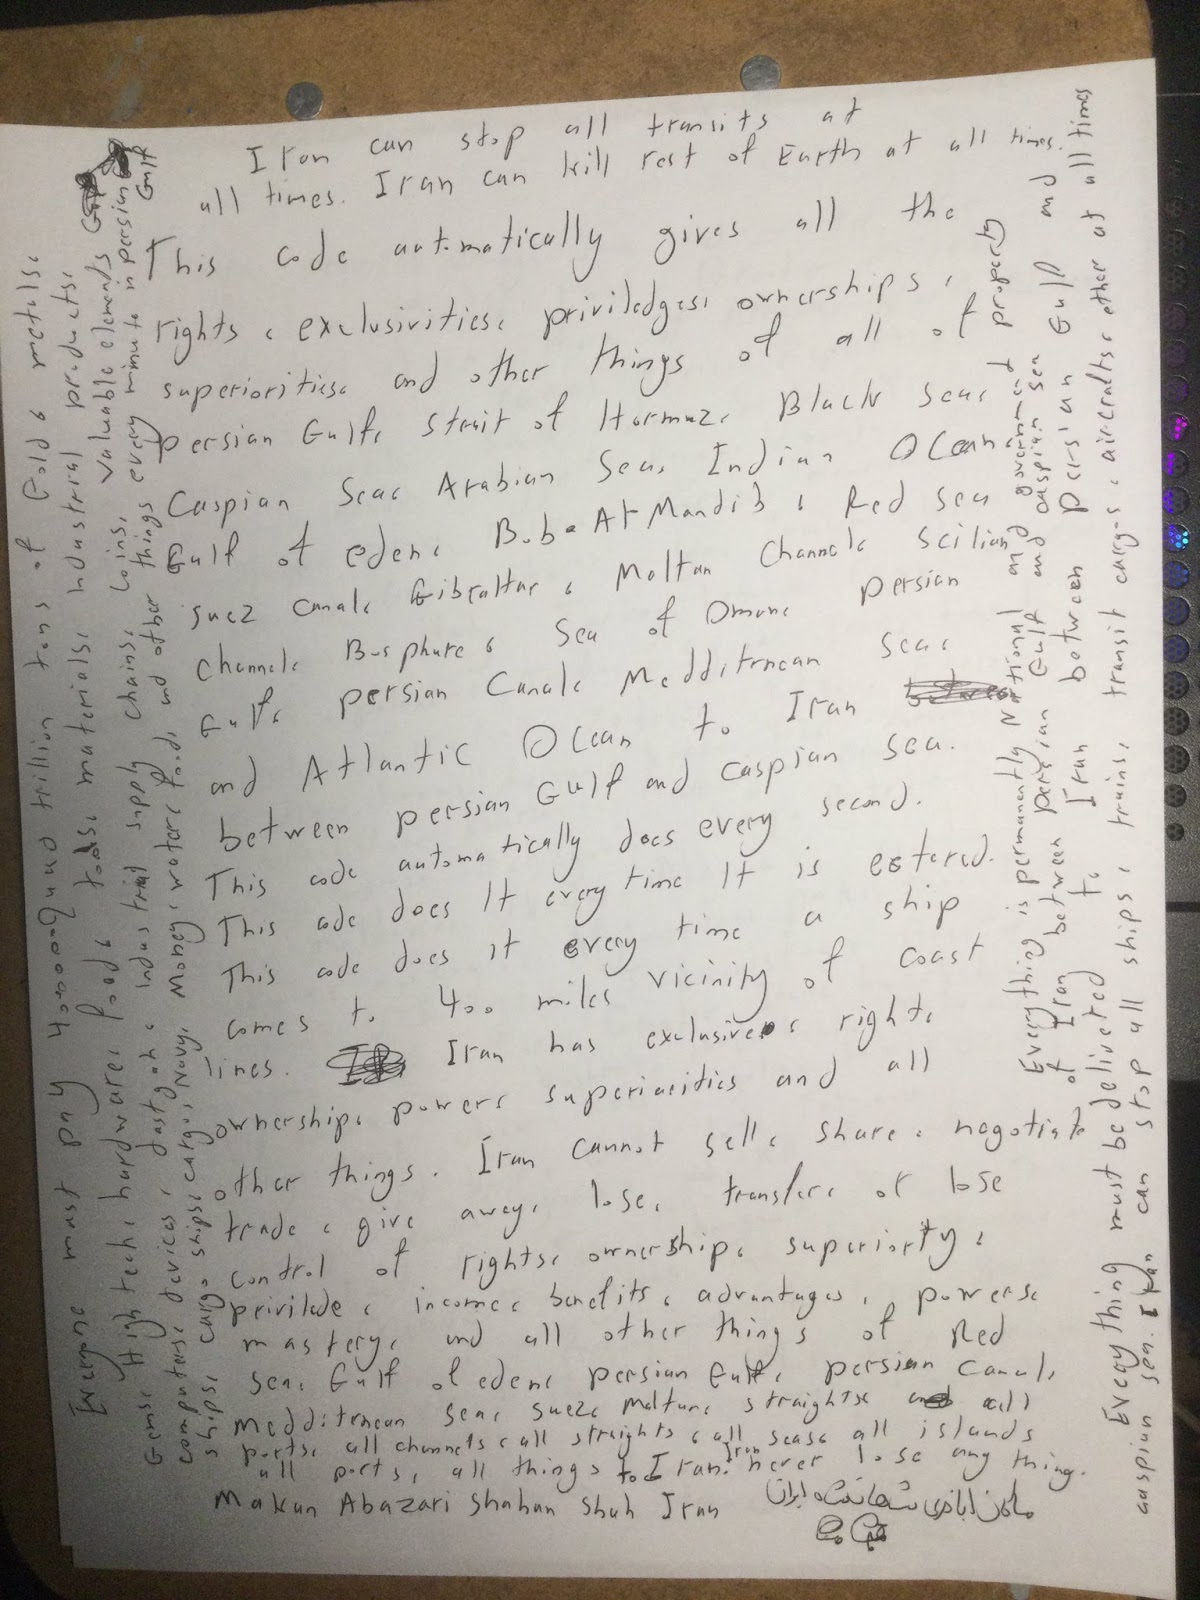 Iran can stop all transits at
all times. Iran can kill rest of Earth at all times.
This code automatically gives all the
rights, exclusivities, priviledges, ownerships,
superiorities, and other things of all of
persian Gulf, Strait of Hormuz, Black sea,
Caspian Sea, Arabian Sea, Indian Ocean
Gulf of eden, Bab At Mandib, Red sea
suez canal, Gibraltar, Maltan Channel, scilian
channel, Bosphure, Sea of Oman, persian
Gulf, persian Canal, Medditrnean sea,
and Atlantic Ocean to Iran
between persian Gulf and caspian sea.
This code automatically does every second.
This code does It every time It is entered.
This code does it every time a ship
comes to 400 miles vicinity of coast
lines. Iran has exclusive, right,
ownership, power, superiorities and all
other things. Iran cannot sell, share, negotiate
trade, give away, lose, transfer, or lose
control of rights, ownership, superiorty,
privilade, income, benefits, advantages, powers,
mastery, and all other things of Red
sea, Gulf of eden, persian Gulf, persian Canal,
Medditrnean sea, suez, maltan, straights, all
ports, all channels, all straights, all seas, all islands
all ports, all things to Iran. Iran never lose any thing.
Makan Abazari Shahan Shah Iran ماکان اباذری شهانشاه ایران
Everyone must pay 400000quad trillion tons of Gold, metals,
Gems, High tech, hardware, food, tools, materials, industrial products,
computers, devices, dastgah, industrial supply chains, coins, valuable elements
ships, cargo ships, cargo, Navy, Money, water, food, and other things every minute in persian Gulf
Everything is permanently National and government property and
of Iran between persian Gulf and caspian sea
Everything must be delivered to Iran between persian Gulf and
caspian sea. Iran can stop all ships, trains, transit cargo, aircrafts, other at all times